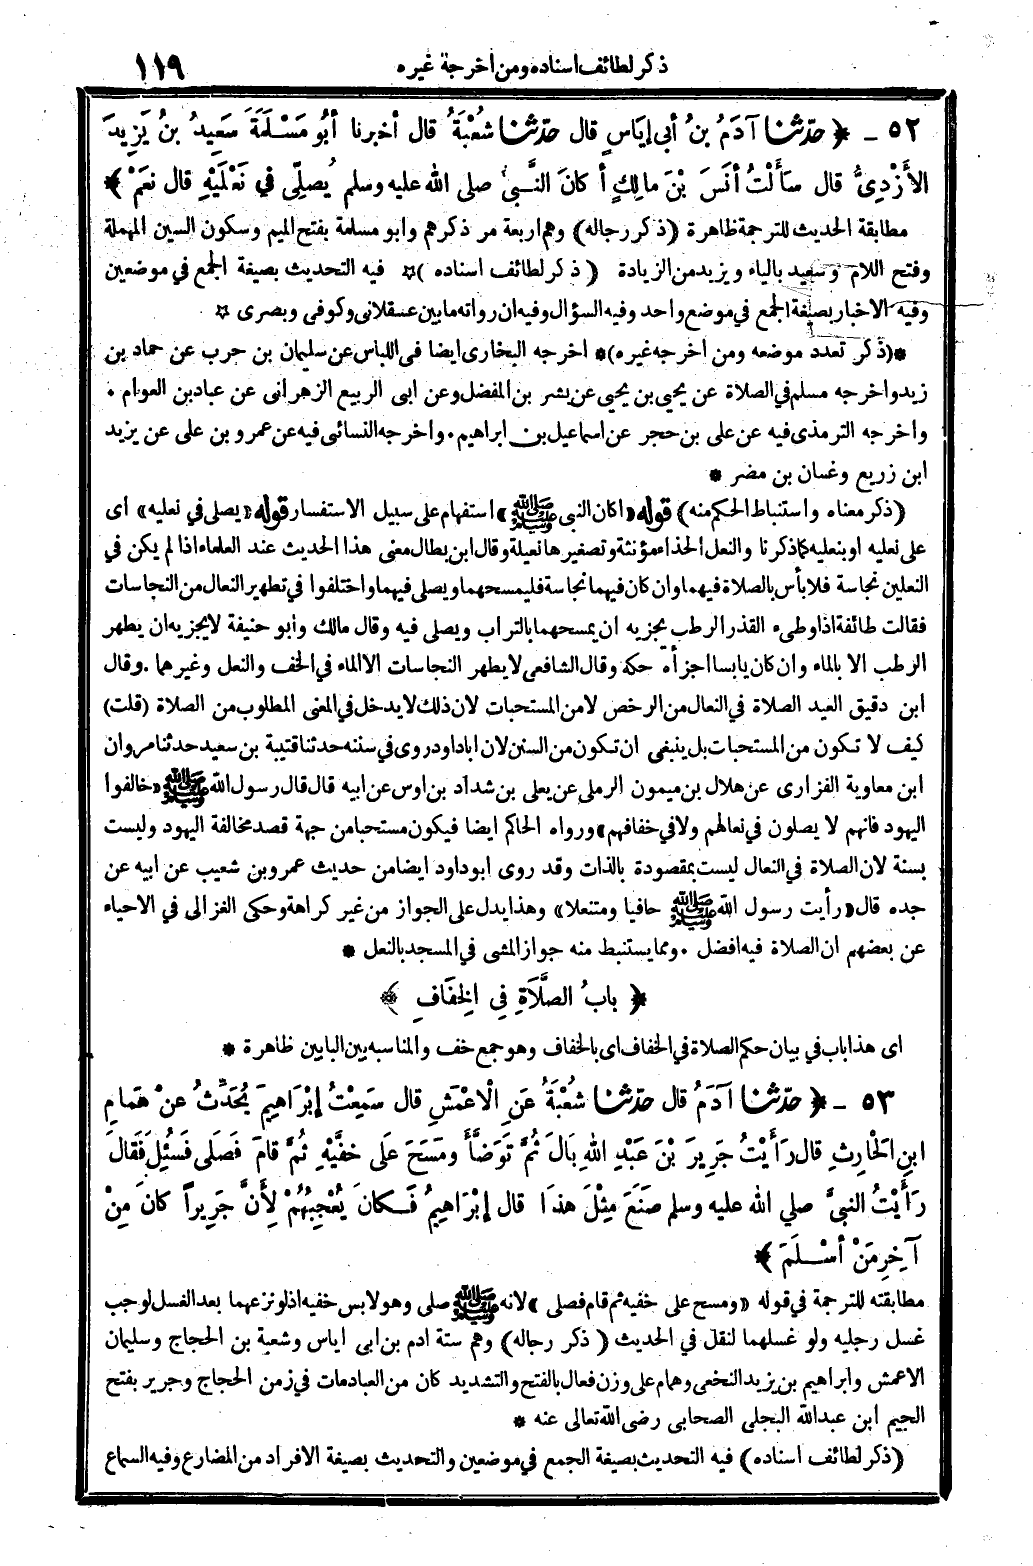 ذكر لطائف اسناده ومن أخرجة غيره ١١٩
٥٢ ـ ﴿ حَدَّثَنَا آدَمُ بنُ أبي إيَاسٍ قال حَدَّثَنَا شُعْبَةُ قال أخبرنا أبُو مَسْلَمَةَ سَعِيدُ بنُ يَزِيدَ
الأَزْدِيُّ قال سَأَلْتُ أنَسَ بْنَ مالِكٍ أكانَ النَّبيُّ صلى الله عليه وسلم يُصلِّي في نَعْلَيْهِ قال نَعَمْ ﴾
مطابقة الحديث للترجمة ظاهرة (ذكر رجاله) وهم اربعة مر ذكرهم وابو مسلمة بفتح الميم وسكون السين المهملة
وفتح اللام وسعيد بالياء ويزيد من الزيادة ( ذكر لطائف اسناده )☆ فيه التحديث بصيغة الجمع في موضعين
وفيه الاخبار بصيغة الجمع في موضع واحد وفيه السؤال وفيه ان رواته ما بين عسقلاني وكوفى وبصرى ☆
*(ذكر تعدد موضعه ومن اخرجه غيره)* اخرجه البخارى ايضا فى اللباس عن سليمان بن حرب عن حماد بن
زيد واخرجه مسلم في الصلاة عن يحيى بن يحيى عن بشر بن المفضل وعن ابى الربيع الزهرانى عن عباد بن العوام .
واخرجه الترمذى فيه عن على بن حجر عن اسماعيل بن ابراهيم . واخرجه النسائى فيه عن عمرو بن على عن يزيد
ابن زريع وغسان بن مضر *
(ذكر معناه واستنباط الحكم منه) قوله «اكان النبي ﷺ» استفهام على سبيل الاستفسار قوله «يصلى في نعليه» اى
على نعليه او بنعليه كما ذكرنا والنعل الحذاء مؤنثة وتصغيرها نعيلة وقال ابن بطال معنى هذا الحديث عند العلماء اذا لم يكن في
النعلين نجاسة فلا بأس بالصلاة فيهما وان كان فيهما نجاسة فليمسحهما ويصلى فيهما واختلفوا في تطهير النعال من النجاسات
فقالت طائفة اذا وطىء القذر الرطب يجزيه ان يمسحهما بالتراب ويصلى فيه وقال مالك وأبو حنيفة لا يجزيه ان يطهر
الرطب الا بالماء وان كان يابسا اجزأه حكه وقال الشافعى لا يطهر النجاسات الا الماء في الخف والنعل وغيرهما . وقال
ابن دقيق العيد الصلاة في النعال من الرخص لا من المستحبات لان ذلك لا يدخل في المعنى المطلوب من الصلاة (قلت)
كيف لا تكون من المستحبات بل ينبغى ان تكون من السنن لان اباداود روى في سننه حدثنا قتيبة بن سعيد حدثنا مروان
ابن معاوية الفزارى عن هلال بن ميمون الرملى عن يعلى بن شداد بن اوس عن ابيه قال قال رسول الله ﷺ «خالفوا
اليهود فانهم لا يصلون في نعالهم ولا في خفافهم» ورواه الحاكم ايضا فيكون مستحبا من جهة قصد مخالفة اليهود وليست
بسنة لان الصلاة في النعال ليست بمقصودة بالذات وقد روى ابو داود ايضا من حديث عمرو بن شعيب عن ابيه عن
جده قال «رأيت رسول الله ﷺ حافيا ومتنعلا» وهذا يدل على الجواز من غير كراهة وحكى الغزالى في الاحياء
عن بعضهم ان الصلاة فيه افضل . ومما يستنبط منه جواز المشى في المسجد بالنعل *
﴿ بابُ الصَّلَاةِ فِي الخِفَافِ ﴾
اى هذا باب في بيان حكم الصلاة في الخفاف اى بالخفاف وهو جمع خف والمناسبه بين البابين ظاهرة *
٥٣ ـ ﴿ حَدَّثَنَا آدَمُ قال حَدَّثَنَا شُعْبَةُ عَنِ الْاعْمَشِ قال سَمِعْتُ إبْرَاهِيمَ يُحَدِّثُ عنْ هَمَامِ
ابنِ الحَارِثِ قال رَأَيْتُ جَرِيرَ بْنَ عَبْدِ اللهِ بَالَ ثُمَّ تَوَضَّأَ ومَسَحَ عَلَى خُفَّيْهِ ثُمَّ قامَ فَصَلى فَسُئِلَ فَقَالَ
رَأَيْتُ النبيَّ صلي الله عليه وسلم صَنَعَ مِثْلَ هذَا قال إبْرَاهِيمُ فَـكانَ يُعْجِبُهُمْ لِأَنَّ جَرِيراً كانَ مِنْ
آخِرِ مَنْ أسْلَمَ ﴾
مطابقته للترجمة في قوله «ومسح على خفيه ثم قام فصلى» لانه ﷺ صلى وهو لابس خفيه اذ لو نزعهما بعد الغسل لوجب
غسل رجليه ولو غسلهما لنقل في الحديث ( ذكر رجاله) وهم ستة ادم بن ابى اياس وشعبة بن الحجاج وسليمان
الاعمش وابراهيم بن يزيد النخعى وهمام على وزن فعال بالفتح والتشديد كان من العبادمات في زمن الحجاج وجرير بفتح
الجيم ابن عبد الله البجلى الصحابى رضى الله تعالى عنه *
(ذكر لطائف اسناده) فيه التحديث بصيغة الجمع في موضعين والتحديث بصيغة الافراد من المضارع وفيه السماع